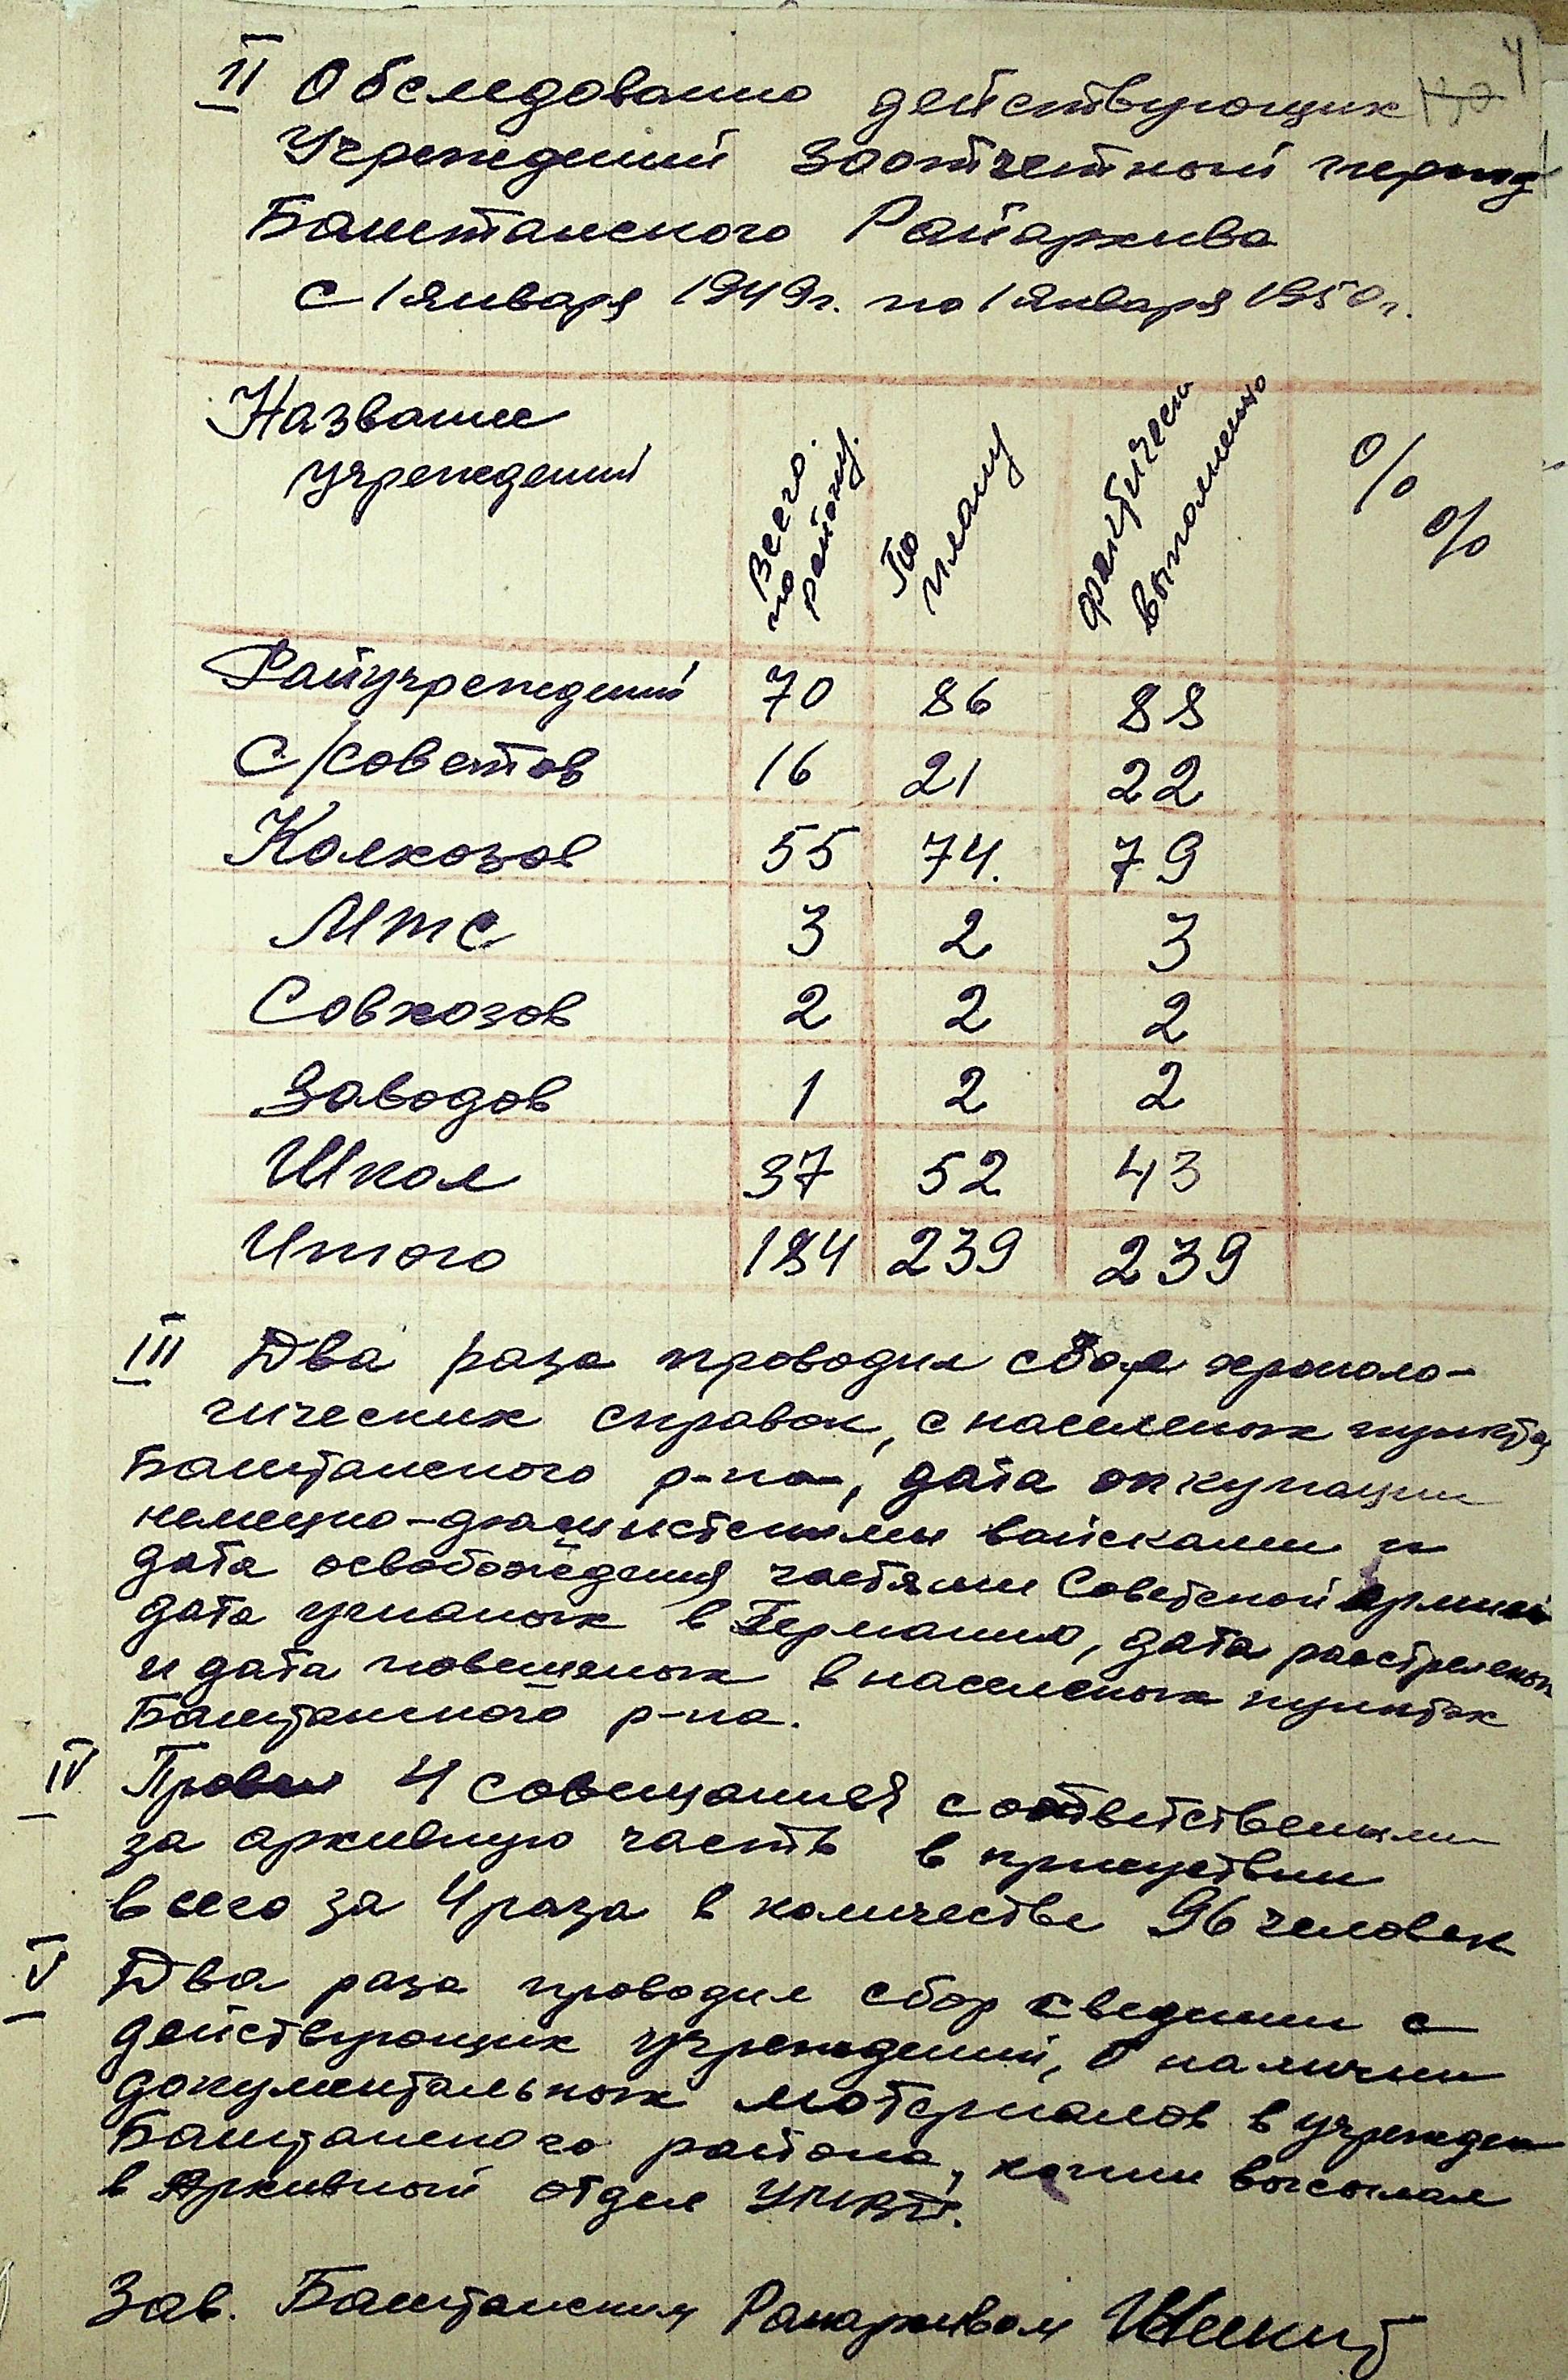 4
II Обследовано действующих
Учреждений заотчетный период
Баштанского Райархива
с 1 января 1949г. по 1 января 1950г.
Название учреждений | Всего по району. | По плану | фактичеси выполнено | % %
Райучреждений 70 86 88
С/советов 16 21 22
Колхозов 55 74. 79
Мтс 3 2 3
Совхозов 2 2 2
Заводов 1 2 2
Школ 37 52 43
Итого 184 239 239
III Два раза проводил сбор хроноло-
гических справок, с населеных пунктах
Баштанского р-на, дата оккупации
немецко-фашистскими войсками и
дата освобождения частями Советской армии
дата угнаных в Германию, дата расстреленых
и дата повешеных в населеных пунктах
Баштанского р-на.
IV Провел 4 совещаний с ответствеными
за архивную часть в присутствии
всего за 4 раза в количестве 96 человек
V Два раза проводил сбор сведении с
действующих учреждений, о наличии
документальных материалов в учрежден
Баштанского района, копии высылал
в Архивный отдел УМВД.
Зав. Баштанским Раиархивом